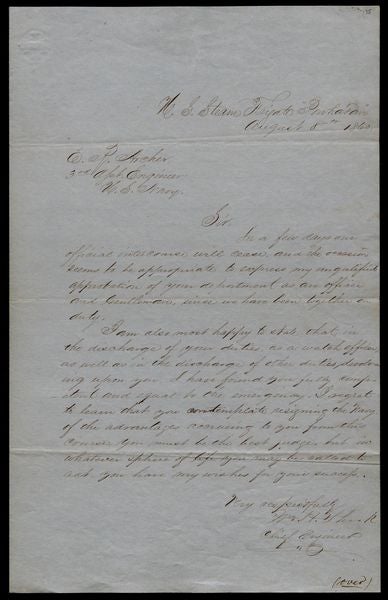 U. S. Steam Frigate Powhatan
August 8th 1860
E. R. Archer
3rd Asst. Engineer
U. S. Navy.
Sir.
In a few days our
official intercourse will cease, and the occasion
seems to be appropriate to express my unqualified
approbation of your deportment as an officer
and Gentleman, since we have been together on
duty.
I am also most happy to state, that in
the discharge of your duties, as a watch officer
as well as in the discharge of other duties, devolv-
ing upon you I have found you fully compe-
tent and equal to the emergency. I regret
to learn that you contemplate resigning the Navy
of the advantages accruing to you from this
course you must be the best judge, but in
whatever sphere of life you may be called to
act you have my wishes for your success.
Very respectfully
Wm. H.
Chief Engineer
(over)